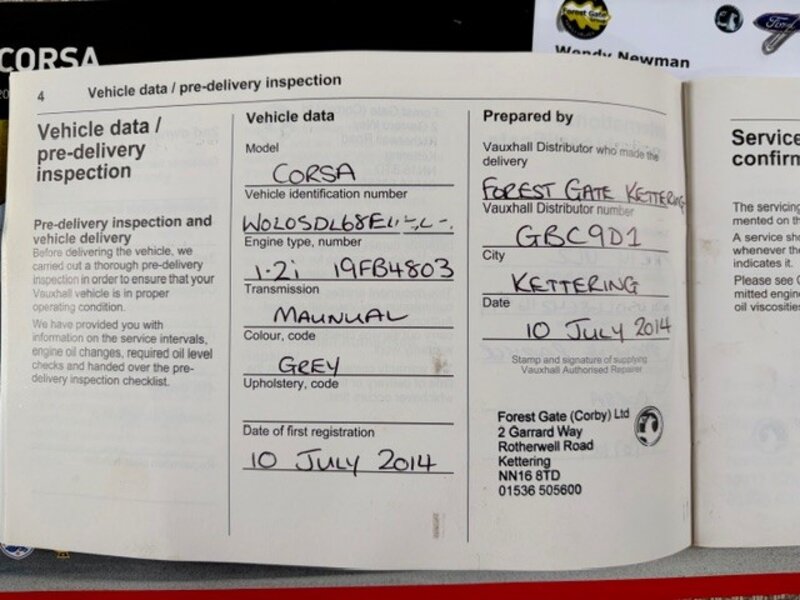 CORSA
Forest Gate
Ford
Wendy Newman
4 Vehicle data / pre-delivery inspection
Vehicle data /
pre-delivery
inspection
Pre-delivery inspection and
vehicle delivery
Before delivering the vehicle, we
carried out a thorough pre-delivery
inspection in order to ensure that your
Vauxhall vehicle is in proper
operating condition.
We have provided you with
information on the service intervals,
engine oil changes, required oil level
checks and handed over the pre-
delivery inspection checklist.
Vehicle data
Model
CORSA
Vehicle identification number
Engine type, number
1.2i 19FB4803
Transmission
MAUNUAL
Colour, code
GREY
Upholstery, code
Date of first registration
10 JULY 2014
Prepared by
Vauxhall Distributor who made the
delivery
FOREST GATE KETTERING
Vauxhall Distributor number
GBC9D1
City
KETTERING
Date
10 JULY 2014
Stamp and signature of supplying
Vauxhall Authorised Repairer
Forest Gate (Corby) Ltd
2 Garrard Way
Rotherwell Road
Kettering
NN16 8TD
01536 505600
Service
confirm
The servicing
mented on th
A service sho
whenever the
indicates it.
Please see C
mitted engine
oil viscosities